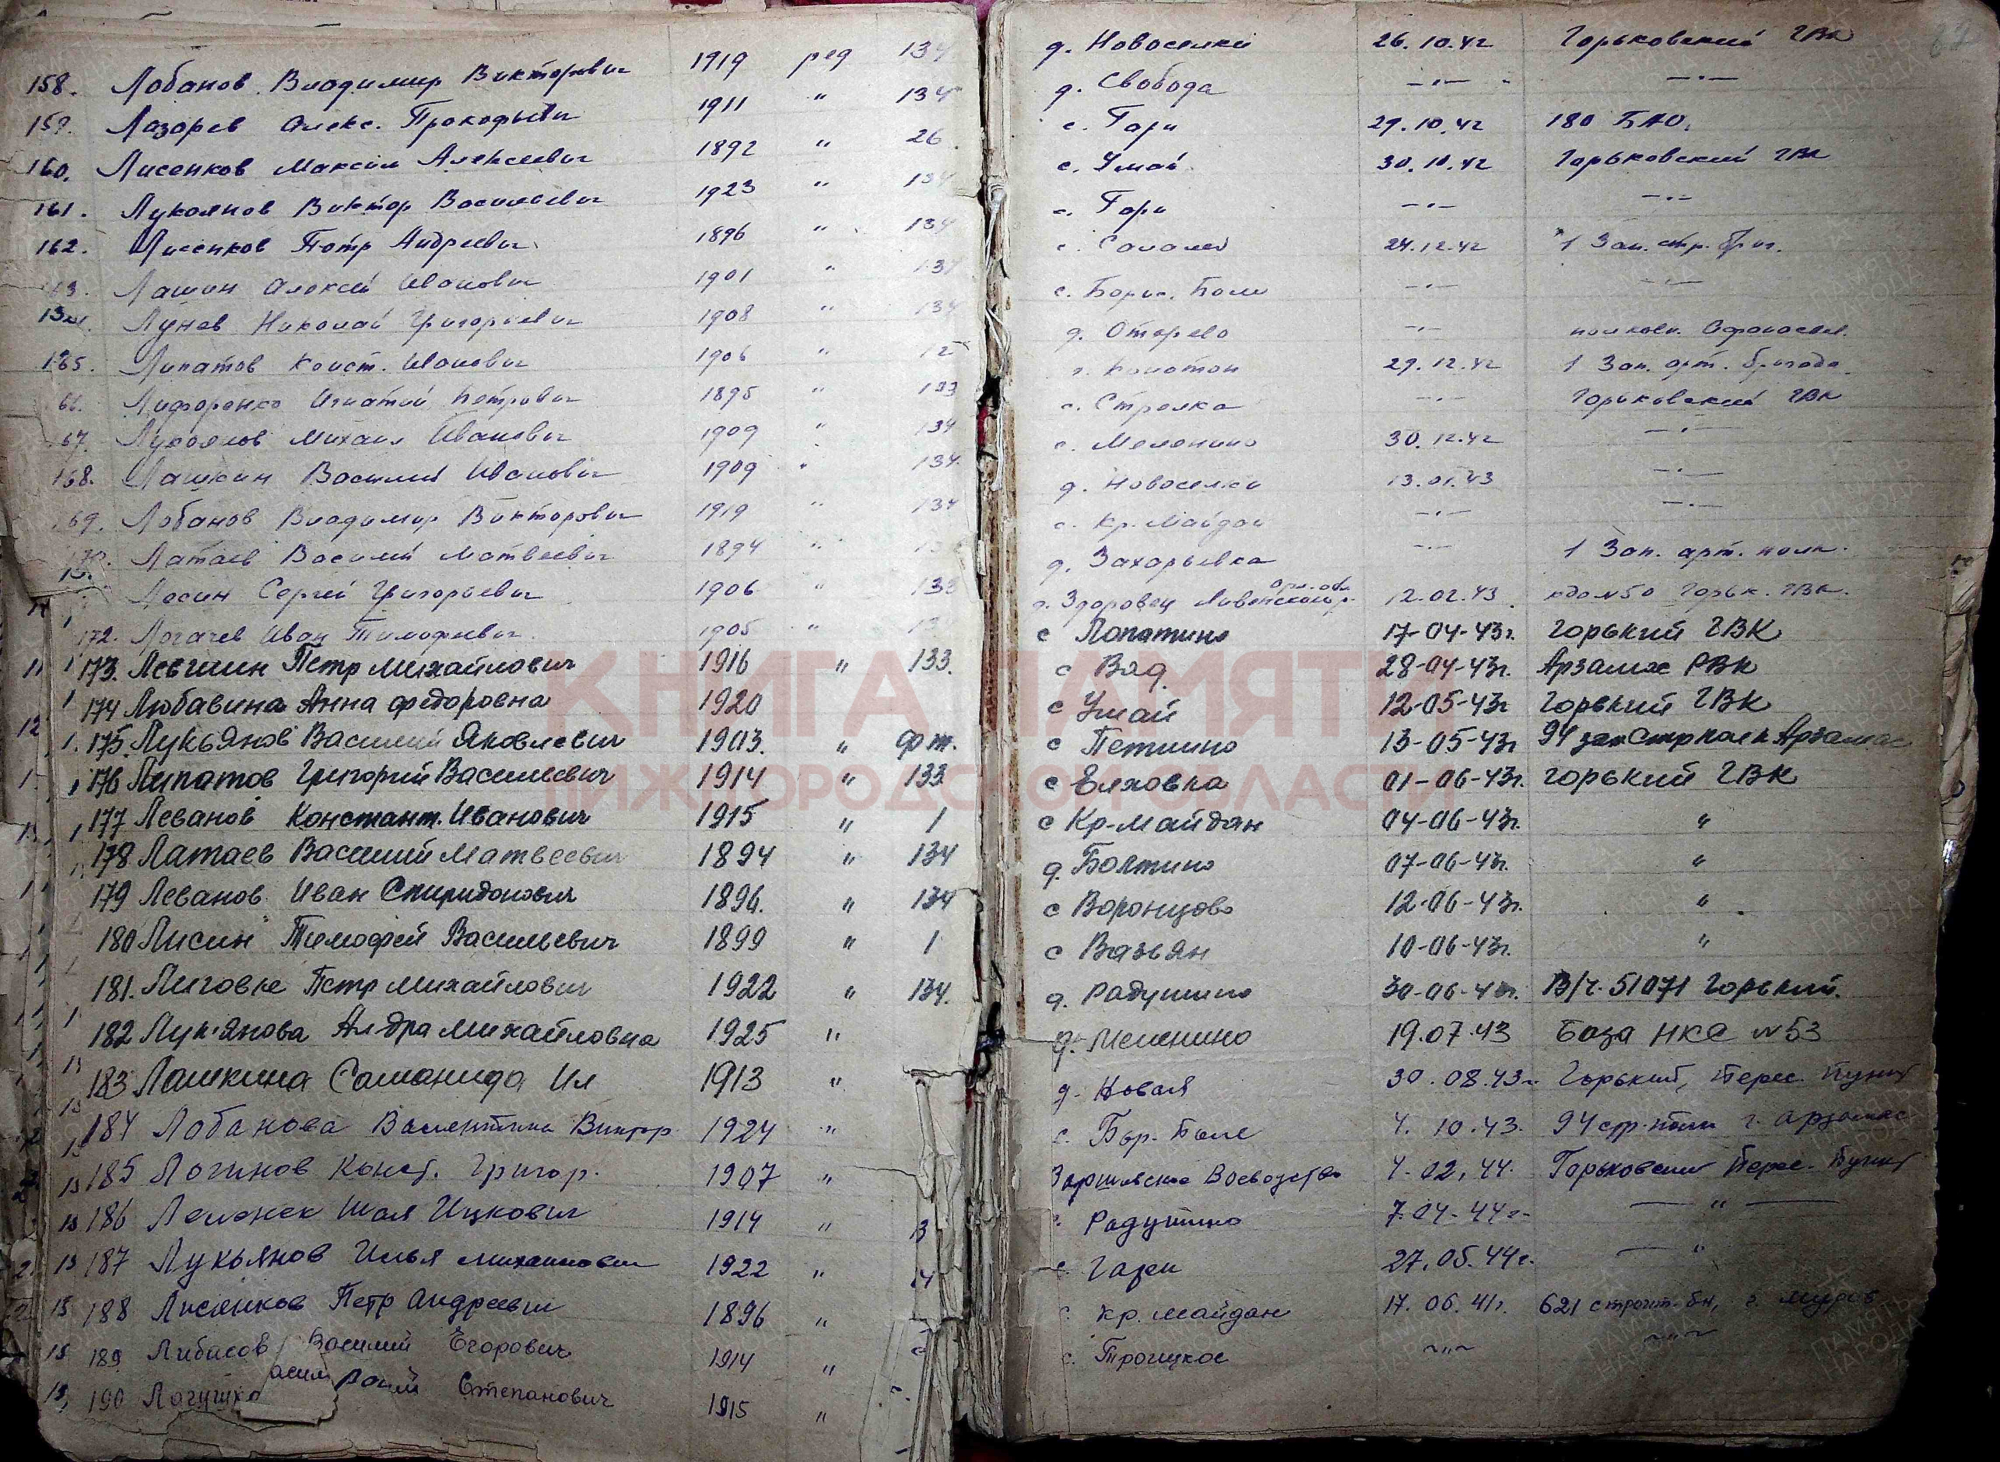 158. Лобанов Владимир Викторович 1919 ряд 134 д. Новоселки 26.10.42 Горьковский ГВК
159. Лазарев Алекс. Прокофьевич 1911 " 134 д. Свобода —"— —"—
160. Лисенков Максим Алексеевич 1892 " 26 с. Гари 29.10.42 180 БАО.
161. Лукоянов Виктор Васильевич 1923 " 134 с. Умай 30.10.42 Горьковский ГВК
162. Лисенков Петр Андреевич 1896 " 134 с. Гари —"— —"—
Лашин Алексей Иванович 1901 " 134 с. 24.12.42 1 Зап. стр. бриг.
Лунев Николай Григорьевич 1908 " 134 с. Борис. Поле —"— —"—
165. Липатов Конст. Иванович 1906 " д. —"—
66. Игнатий Петрович 1895 " 133 29.12.42 1 Зап. арт. бригада
67. Лукоянов Михаил Иванович 1909 " 134 с. Стрелка —"— Горьковский ГВК
168. Лашкин Василий Иванович 1909 " 134. с. Меленино 30.12.42 —"—
169. Лобанов Владимир Викторович 1919 " 134 д. Новоселки 13.01.43 —"—
Латаев Василий Матвеевич 1894 " с. Кр. Майдан —"— —"—
Лесин Сергей Григорьевич 1906 " 133 д. Захарьевка —"— 1 Зап. арт. полк.
172. Логачев Иван Тимофеевич. 1905 " д. Здоровец 12.02.43 Горьк. ГВК.
173. Левшин Петр Михайлович 1916 " 133. с Лопатино 17-04-43г. Горький ГВК
174 Любавина Анна Федоровна 1920 с Вад. 28-04-43г. Арзамас РВК
175 Лукьянов Василий Яковлевич 1903. " фт. с Умай 12-05-43г Горький ГВК
176 Липатов Григорий Васильевич 1914 " 133 с Петлино 13-05-43г 94 зап Стр полк Арзамас
177 Леванов Констант. Иванович 1915 " 1 с Елховка 01-06-43г. Горький ГВК
178 Латаев Василий Матвеевич 1894 " 134 с Кр-Майдан 04-06-43г. "
179 Леванов Иван Спиридонович 1896. " 134 д. Болтино 07-06-43г. "
180 Лисин Тимофей Васильевич 1899 " 1 с Воронцово 12-06-43г. "
181. Петр Михайлович 1922 " 134. с Вазьян 10-06-43г. "
182 Лук'янова Ал-дра Михайловна 1925 " д. Радушино 30-06-43г. В/ч. 51071 Горький.
183 Лашкина Саломанида Ил 1913 " д. Меленино 19.07.43 База НКС №53
184 Лобанова Валентина Виктор. 1924 " д. Новая 30.08.43г. Горький, Перес. Пункт
185 Логинов Конст. Григор. 1907 " с. Бор-Поле 4.10.43. 94 стр. полк г. Арзамас
186 Ицкович 1914 " Воеводство 4.02.44. Горьковский Перес. Пункт
187 Лукьянов Илья Михайлович 1922 " Радушино 7.04-44г. — " —
188 Лисенков Петр Андреевич 1896 " с. Гари 27.05.44г. — " —
189 Либасов Василий Егорович 1914 " с. Кр. Майдан 17.06.41г. 621 строит-бн, г. Муров
190 Степанович 1915 " с. Троицкое ~"~ ~"~
КНИГА ПАМЯТИ
НИЖЕГОРОДСКОЙ ОБЛАСТИ